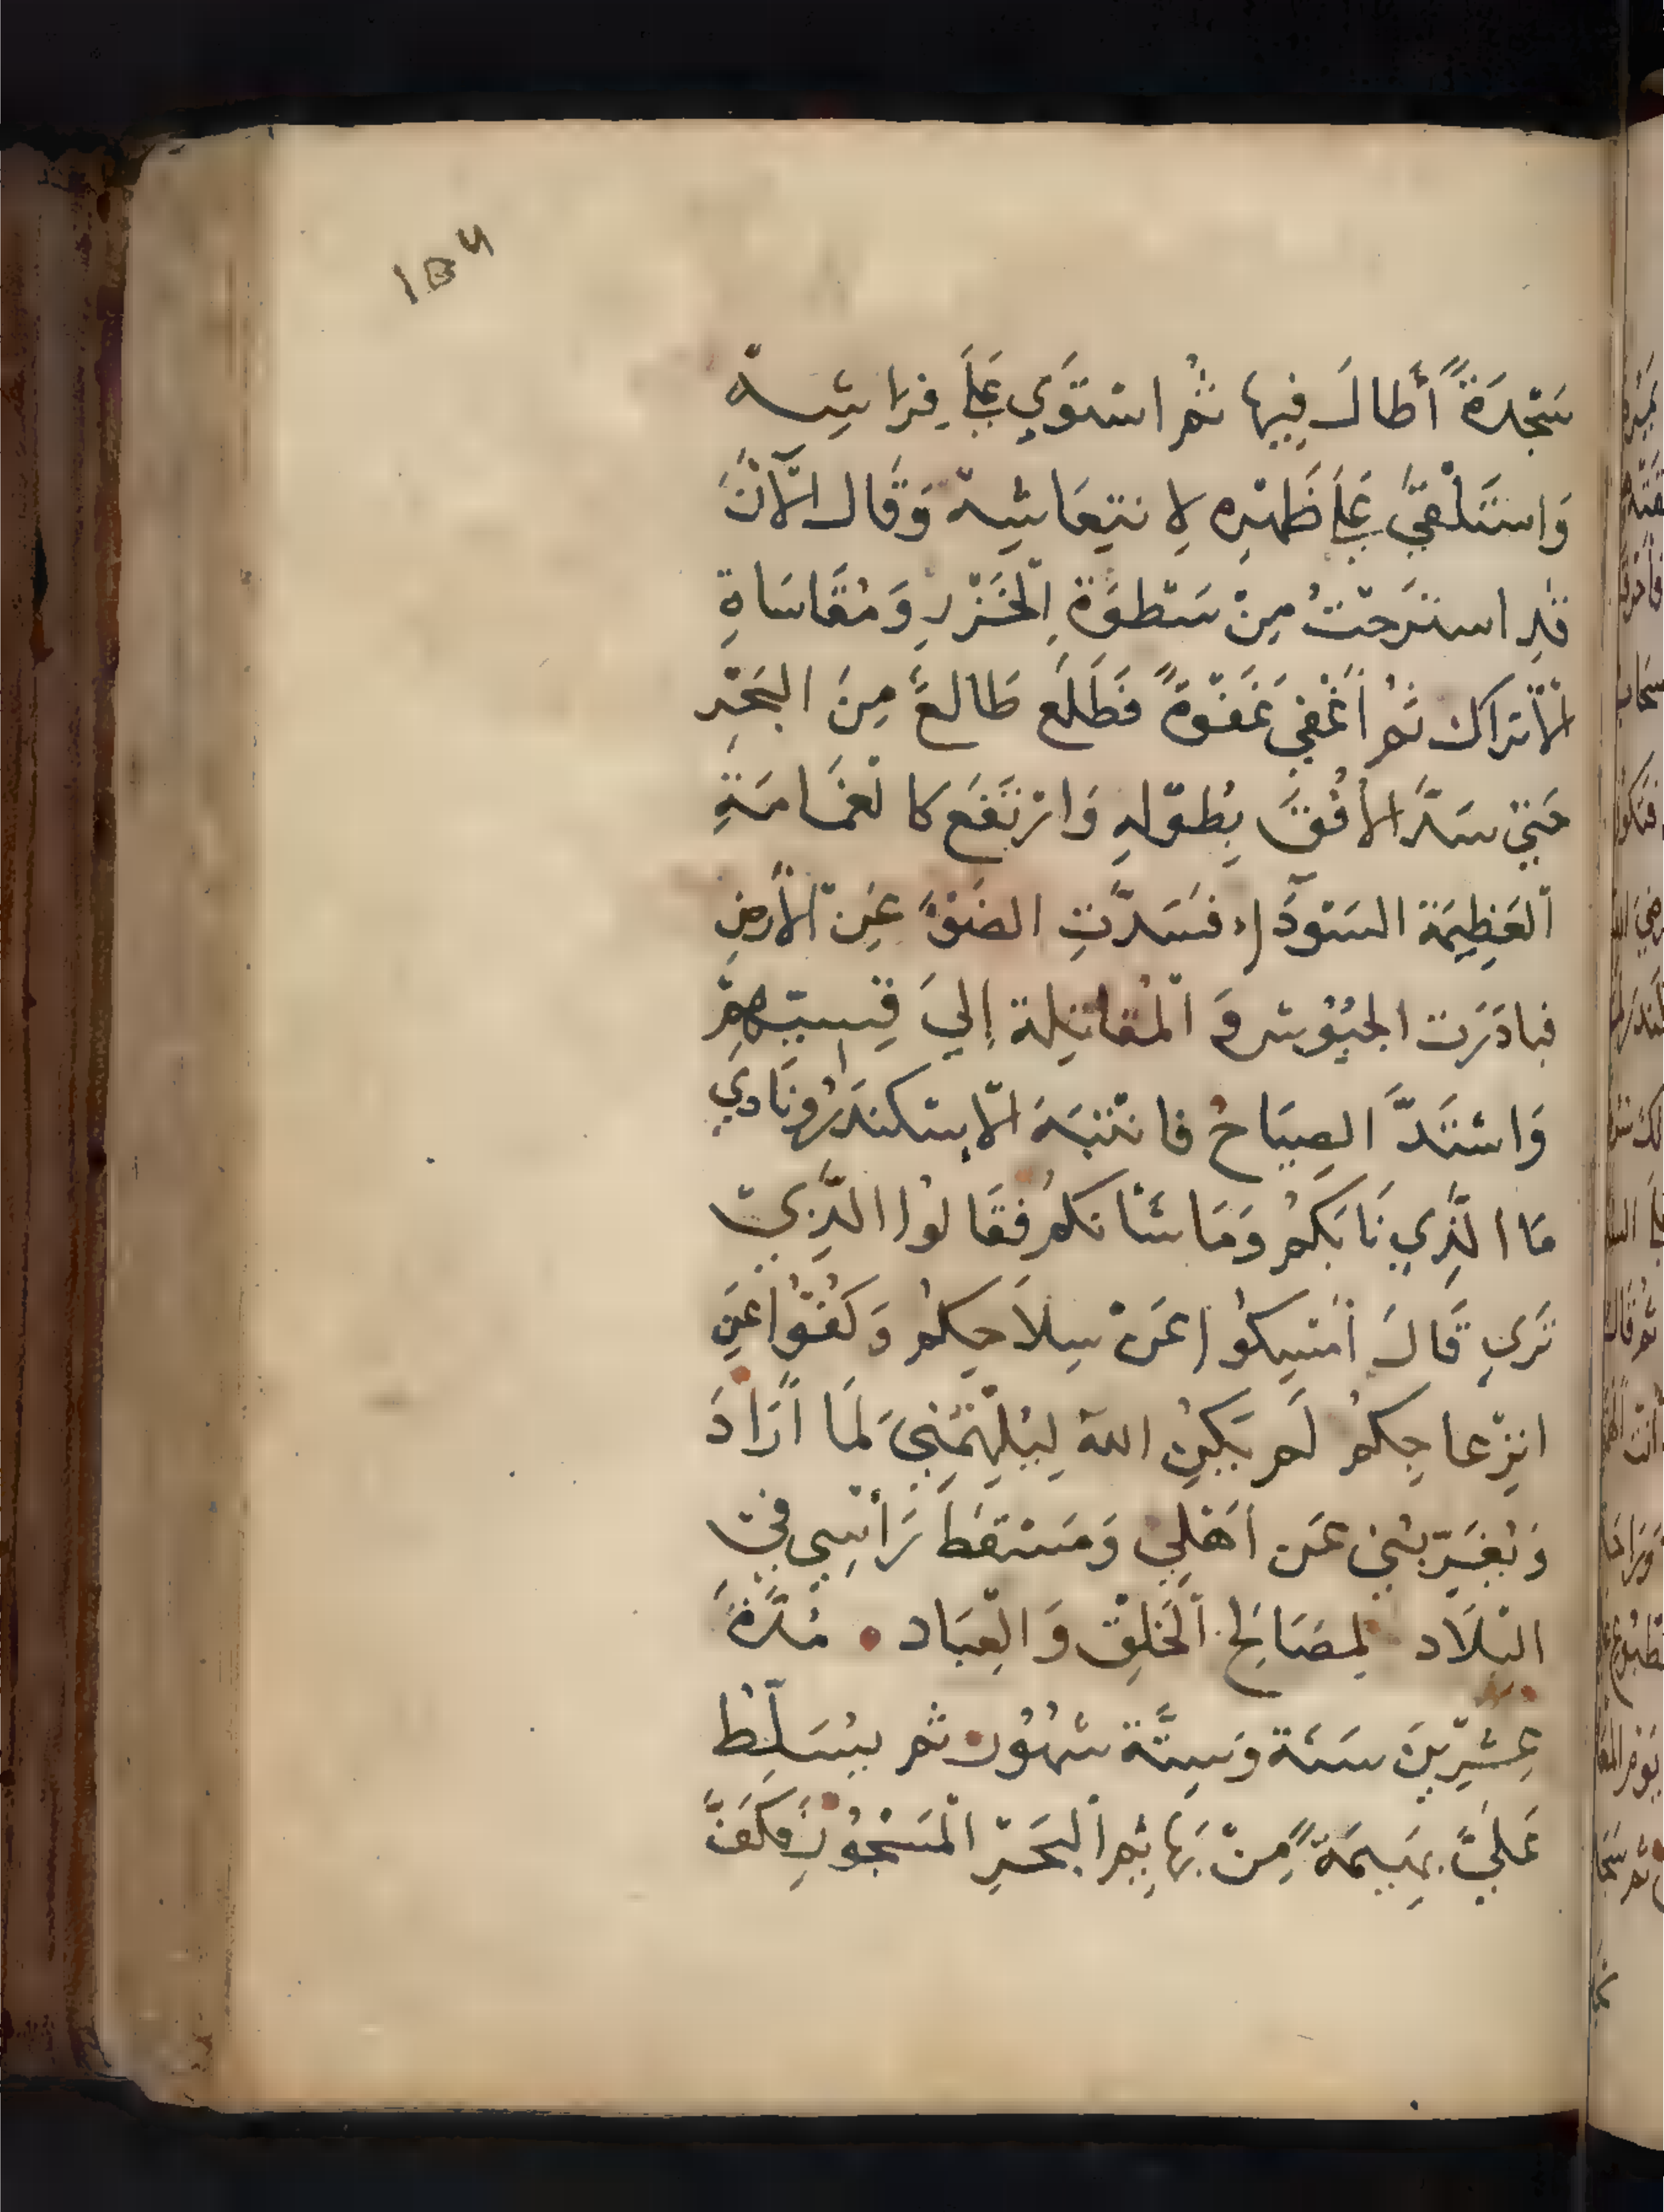 ١٥٦
سَجْدَةً أَطَالَ فِيهَا ثُمَّ اسْتَوَي عَلَي فِرَاشِهْ
وَاسْتَلْقَي عَلَي ظَهْرِه لِانْتِعَاشِهْ وَقَال الْآنَ
قَدِ اسْتَرَحْتُ مِنْ سَطْوَةِ الْخَزَرِ وَمُقَاسَاةِ
الْأتراك ثُم أَغْفَي غَفْوَةً فَطَلَع طَالعٌ مِنَ البَحْرِ
حَتي سَدَّ الأُفُقَ بِطُوْلِهِ وَارْتَفَع كالْغَمَامَةِ
الْعَظِيمَة السَّوْدَآءِ فَسَدَّتِ الضَوْءَ عَنِ الْأَرضِ
فبادَرَت الجُيُوْش وَ الْمُقَاتِلة إِليَ قِسِيِّهِمْ
وَاشْتَدَّ الصِيَاحُ فانْتَبَهَ الْإِسْكَنْدَرُ وَنَادَي
مَا الَّذِي نَابَكُمْ وَمَا شَأْنكُمْ فَقَالُوا الَّذِي
تَرَي قَالَ أَمْسِكُوا عَنْ سِلَاحِكُم وَكُفُّوْا عَنِ
انزِعاجِكُمْ لَم يَكُنِ اللهُ لِيُلْهِمَنِي لَمَا أَرَادَ
وَيُغَرِّبُني عَن أَهْلِي وَمَسْقَط رَأْسِي في
الْبِلَاد لِمصَالِحِ الْخَلْقِ وَ الْعِبَاد . مُدَّةَ
عِشْرِيْنَ سَنَة وَسِتَّة شُهُوْر ثُم يُسَلِّطُ
عَلَيَّ بَهِيمَةً مِنْ بَهَائِمِ الْبَحْرِ الْمَسْجُوْرِ فَكَفَّ